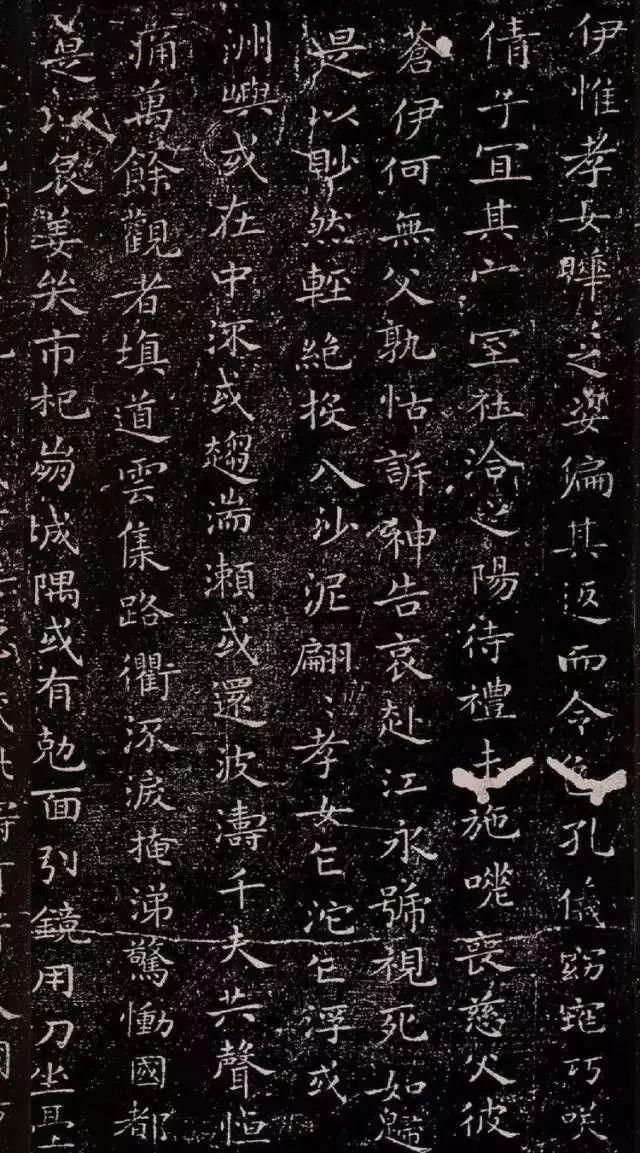 伊惟孝女曄〻之姿偏其返而令色孔儀窈窕巧咲
倩兮宜其家室在洽之陽待禮未施嗟喪慈父彼
蒼伊何無父孰怙訴神告哀赴江永號視死如歸
是以眇然輕絶投入沙泥翩〻孝女乍沱乍浮或
洲嶼或在中流或趨湍瀬或還波濤千夫共聲恒
痛萬餘觀者填道雲集路衢流淚掩涕驚慟國都
是以哀姜哭市杞崩城隅或有勉面引鏡用刀坐䑓